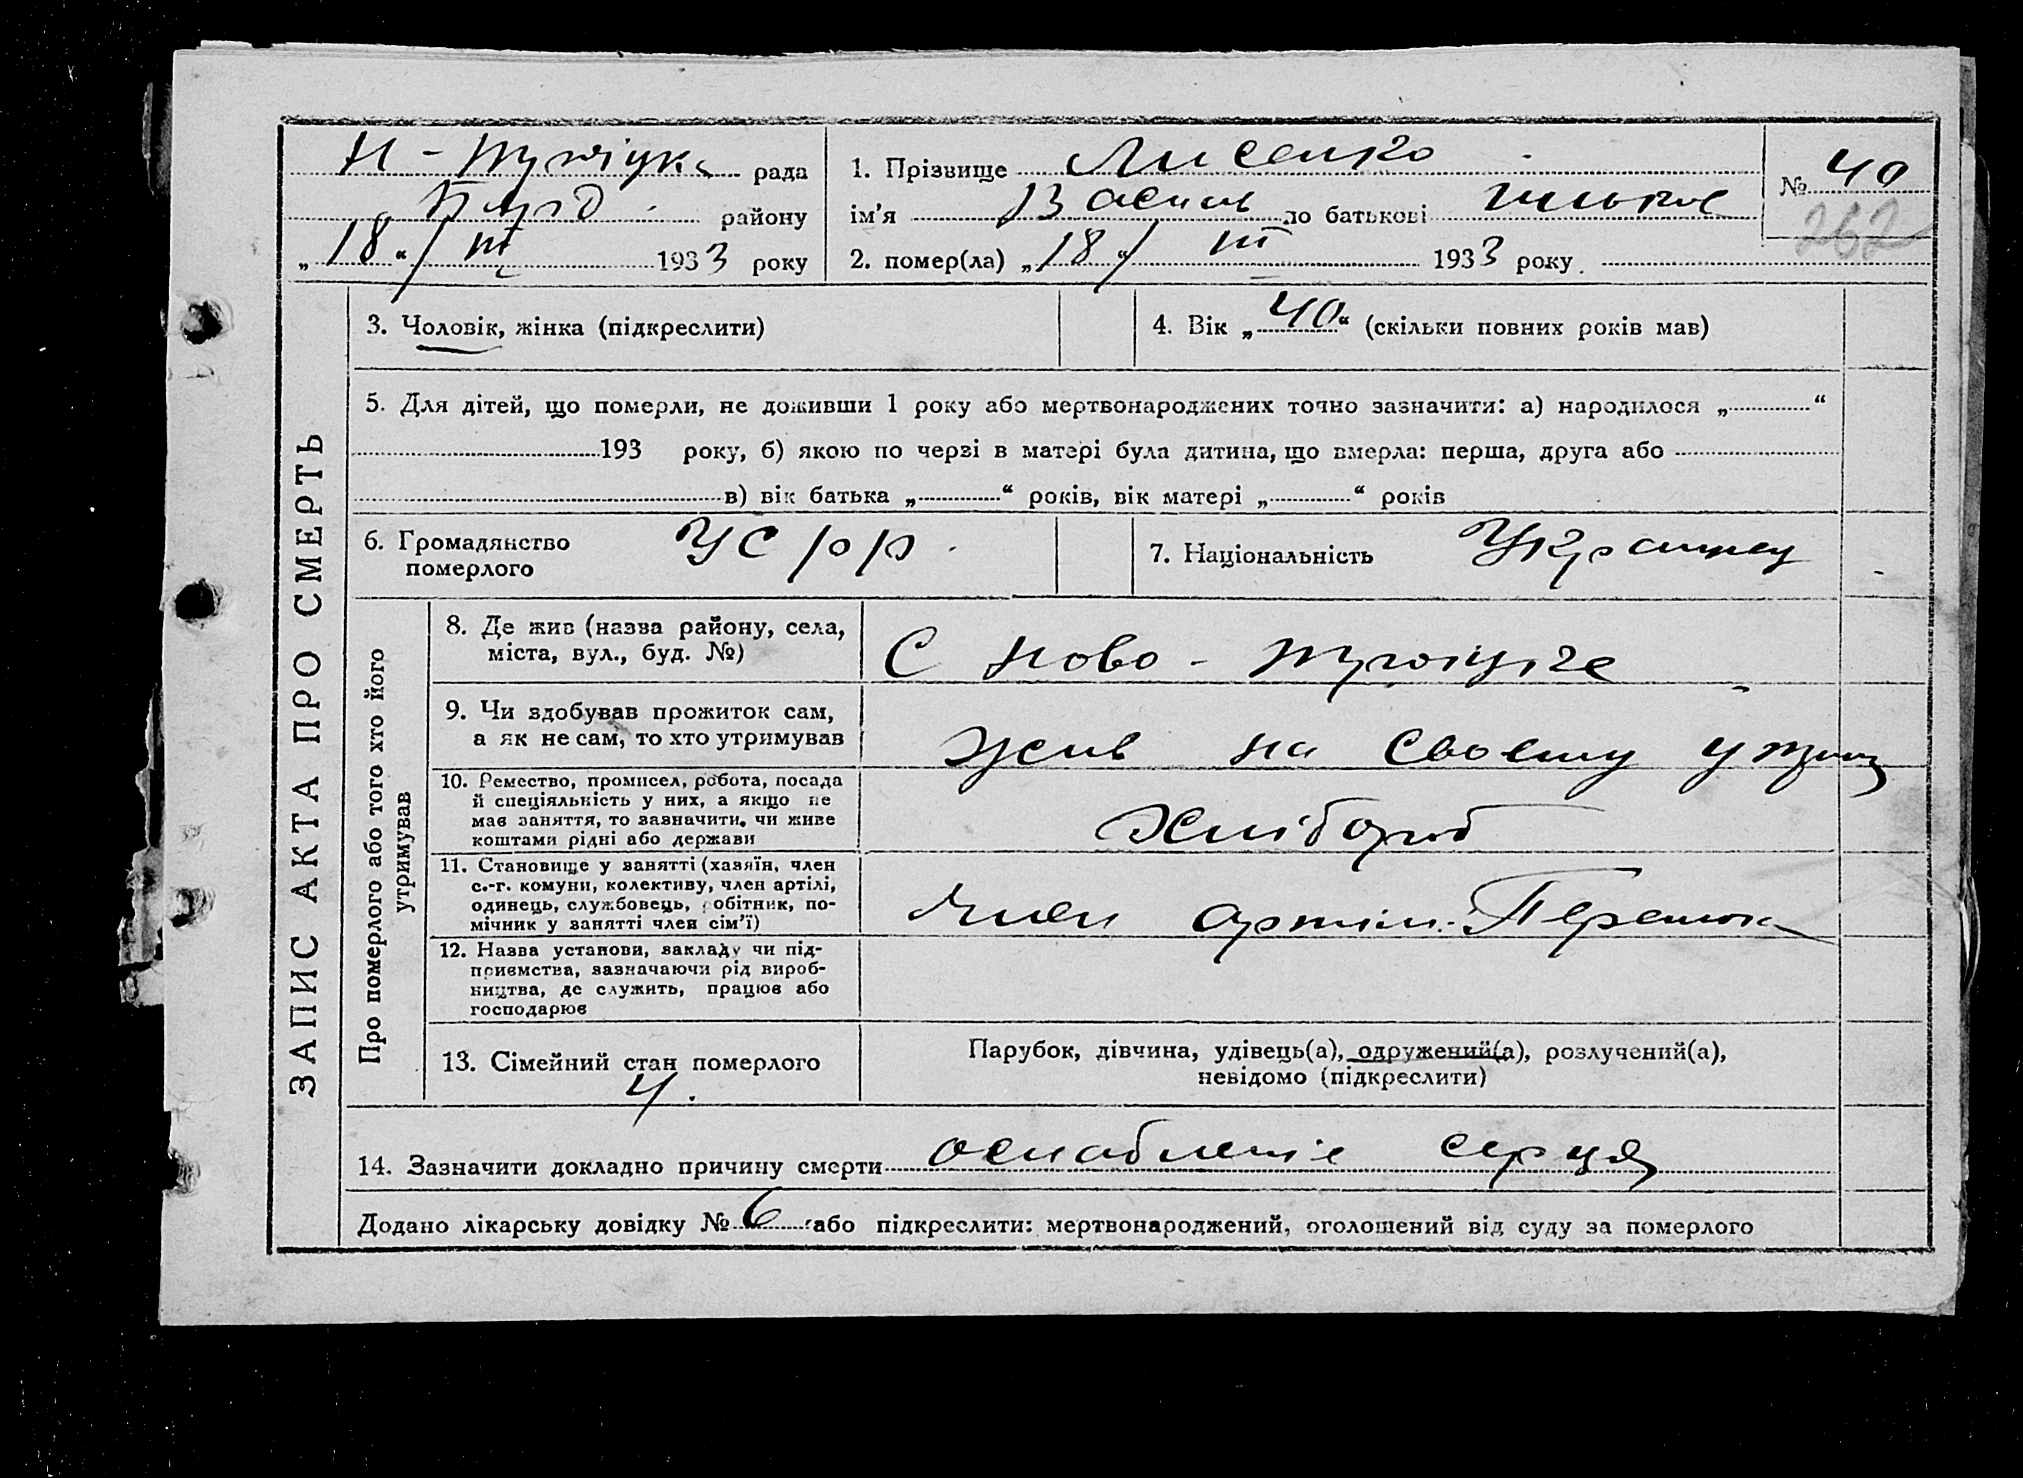 рада
району
„ 18 “ / III 1933 року
1. Прізвище Лисенко
ім'я Василь по батькові
2. помер(ла) „ 18 “ / III 1933 року
№ 40
262
ЗАПИС АКТА ПРО СМЕРТЬ
3. Чоловік, жінка (підкреслити)
4. Вік „ 40 “ (скільки повних років мав)
5. Для дітей, що померли, не доживши 1 року або мертвонароджених точно зазначити: а) народилося „ “
193 року, б) якою по черзі в матері була дитина, що вмерла: перша, друга або
в) вік батька „ “ років, вік матері „ “ років
6. Громадянство
померлого
УСРР
7. Національність
Про померлого або того хто його
утримував
8. Де жив (назва району, села,
міста, вул., буд. №)
С Ново -
9. Чи здобував прожиток сам,
а як не сам, то хто утримував
жив на своему
10. Ремество, промисел, робота, посада
й спеціяльність у них, а якщо не
мав заняття, то зазначити, чи живе
коштами рідні або держави
Хлібороб
11. Становище у занятті (хазяїн, член
с.-г. комуни, колективу, член артілі,
одинець, службовець, робітник, по-
мічник у занятті член сім'ї)
Член артіли
12. Назва установи, закладу чи під-
приємства, зазначаючи рід вироб-
ництва, де служить, працює або
господарює
13. Сімейний стан померлого
4.
Парубок, дівчина, удівець(а), одружений(а), розлучений(а),
невідомо (підкреслити)
14. Зазначити докладно причину смерти ослабление серця
Додано лікарську довідку № 6 або підкреслити: мертвонароджений, оголошений від суду за померлого